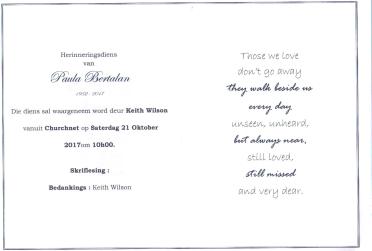 Herinneringsdiens
van
Paula Bertalan
Die diens sal waargeneem word deur Keith Wilson
vanuit Churchnet op Saterdag 21 Oktober
2017om 10h00.
Skriflesing :
Bedankings : Keith Wilson
Those we love
don't go away
they walk beside us
every day
unseen, unheard,
but always near,
still loved,
still missed
and very dear.